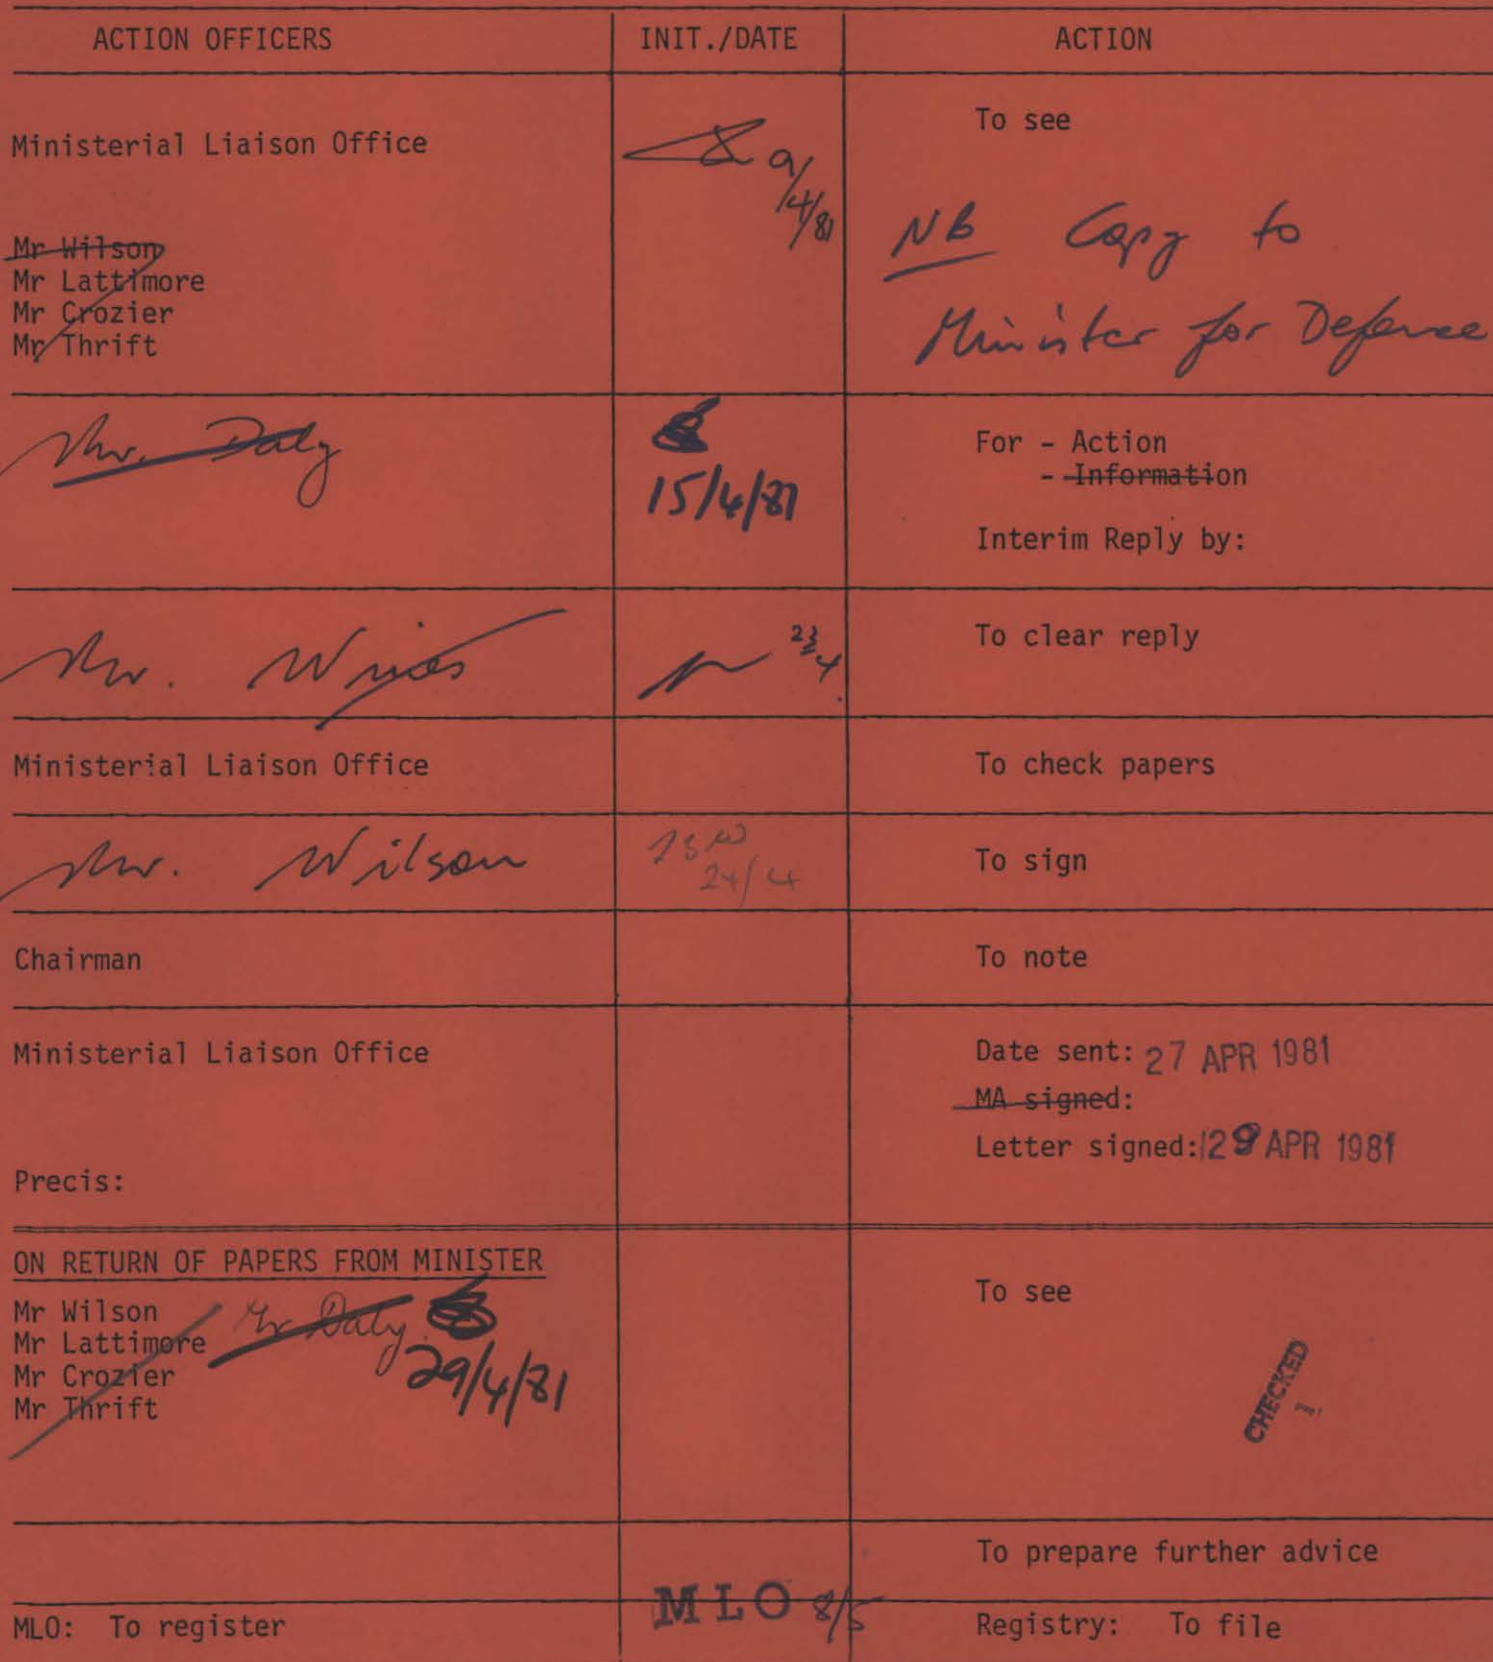 ACTION OFFICERS INIT./DATE ACTION
Ministerial Liaison Office 9/4/81 To see
Mr Wilson
Mr Lattimore
Mr Crozier
Mr Thrift
NB Copy to
Minister for Defence
Mr. Daly 15/4/81 For - Action
- Information
Interim Reply by:
Mr. 23/4 To clear reply
Ministerial Liaison Office To check papers
Mr. Wilson 24/4 To sign
Chairman To note
Ministerial Liaison Office Date sent: 27 APR 1981
MA signed:
Letter signed: 29 APR 1981
Precis:
ON RETURN OF PAPERS FROM MINISTER
To see
Mr Wilson Mr Daly
Mr Lattimore
Mr Crozier 29/4/81
Mr Thrift
CHECKED
1
To prepare further advice
MLO: To register MLO 8/5 Registry: To file